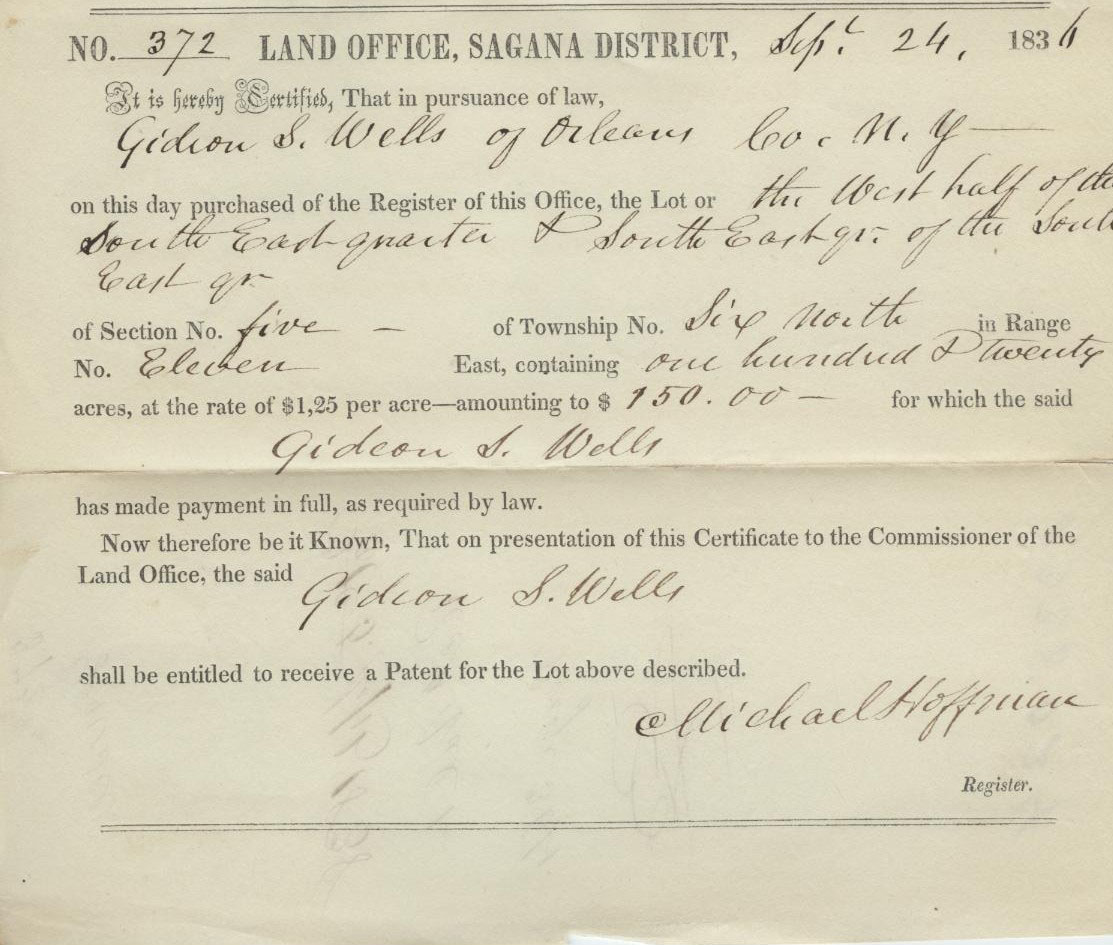 NO. 372 LAND OFFICE, SAGANA DISTRICT, Sept. 24, 1836
It is hereby Certified, That in pursuance of law,
Gideon S. Wells of Orleans Co. N. Y
on this day purchased of the Register of this Office, the Lot or the West half of the
South East quarter & South East qr. of the South
East qr
of Section No. five – of Township No. Six North in Range
No. Eleven East, containing one hundred & twenty
acres, at the rate of $1,25 per acre—amounting to $ 150.00 – for which the said
Gideon S. Wells
has made payment in full, as required by law.
Now therefore be it Known, That on presentation of this Certificate to the Commissioner of the
Land Office, the said Gideon S. Wells
shall be entitled to receive a Patent for the Lot above described.
Michael Hoffman
Register.